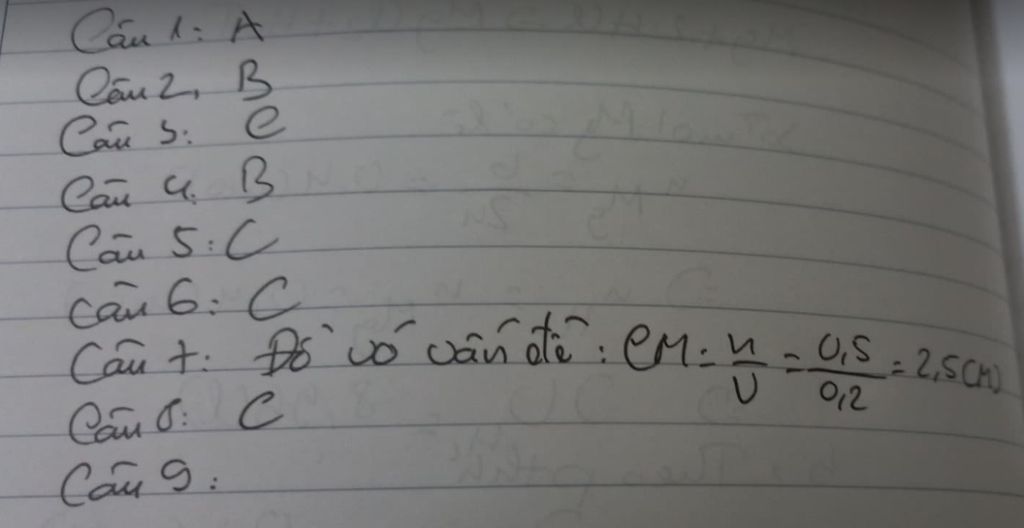 Câu 1: A
Câu 2, B
Câu 3: C
Câu 4. B
Câu 5: C
Câu 6: C
Câu 7: Đề có vấn đề: CM = n/V = 0,5/0,2 = 2,5(M)
Câu 8: C
Câu 9: